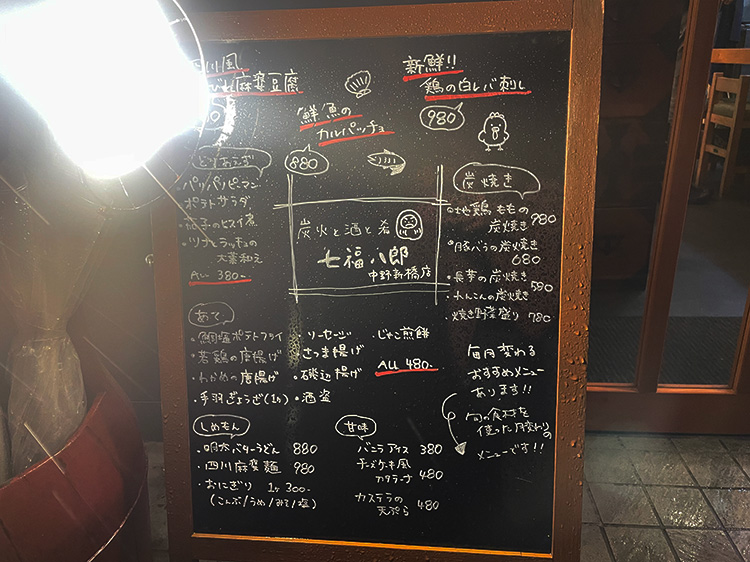 川風
びれ麻婆豆腐
鮮魚の
カルパッチョ
880
新鮮!!
鶏の白レバ刺し
980
とりあえず
・パリパリピーマン
ポテトサラダ
・茄子のヒスイ煮
・ツナとラッキョの
大葉和え
ALL 380-
炭火と酒と肴
七福八郎
中野新橋店
炭焼き
・地鶏ももの
炭焼き 980
・豚バラの炭焼き
680
・長芋の炭焼き
・れんこんの炭焼き 580
・焼き野菜盛り 780
あて
・鯛塩ポテトフライ
・若鶏の唐揚げ
・わかめの唐揚げ
・手羽ぎょうざ(1ヶ)
・ソーセージ
・さつま揚げ
・磯辺揚げ
・酒盗
・じゃこ煎餅
ALL 480-
毎月変わる
おすすめメニュー
あります!!
旬の食材を
使った月変わりの
メニューです!!
しめもん
・明太バターうどん 880
・四川麻婆麺 980
・おにぎり 1ヶ 300-
(こんぶ/うめ/みそ/塩)
甘味
バニラアイス 380
チーズケーキ風
カタラーナ 480
カステラの
天ぷら 480